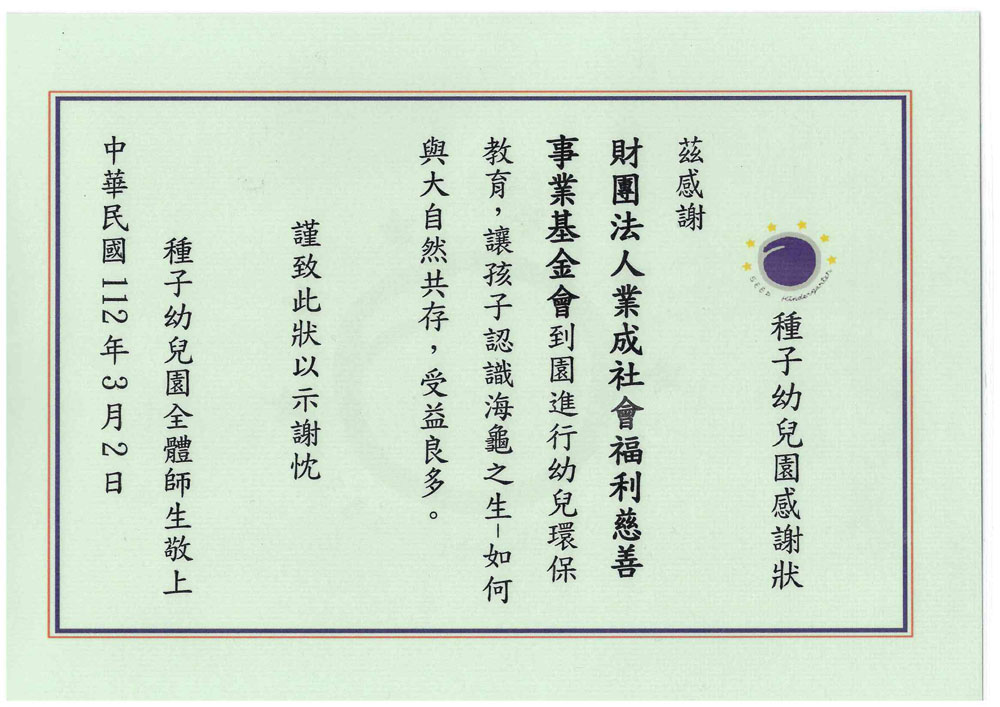 SEED Kindergarten
種子幼兒園感謝狀
茲感謝
財團法人業成社會福利慈善
事業基金會到園進行幼兒環保
教育，讓孩子認識海龜之生–如何
與大自然共存，受益良多。
謹致此狀以示謝忱
種子幼兒園全體師生敬上
中華民國112年3月2日